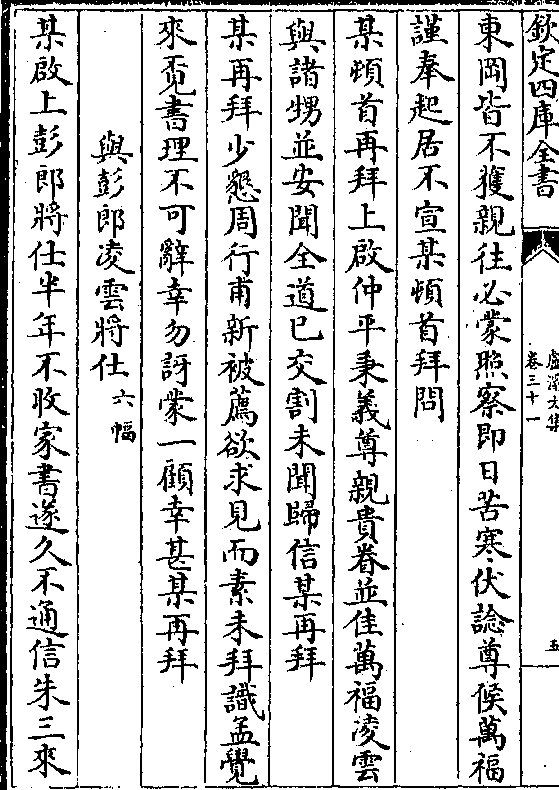 欽定四庫全書
盧溪文集
卷三十一
五
東岡皆不獲親往必蒙照察即日苦寒伏諗尊候萬福
謹奉起居不宣某頓首拜問
某頓首再拜上啟仲平秉義尊親貴眷並佳萬福凌雲
與諸甥並安聞全道已交割未聞歸信某再拜
某再拜少懇周行甫新被薦欲求見而素未拜識孟覺
來覔書理不可辭幸勿訝蒙一顧幸甚某再拜
與彭郎凌雲將仕六幅
某啟上彭郎將仕半年不收家書遂久不通信朱三來